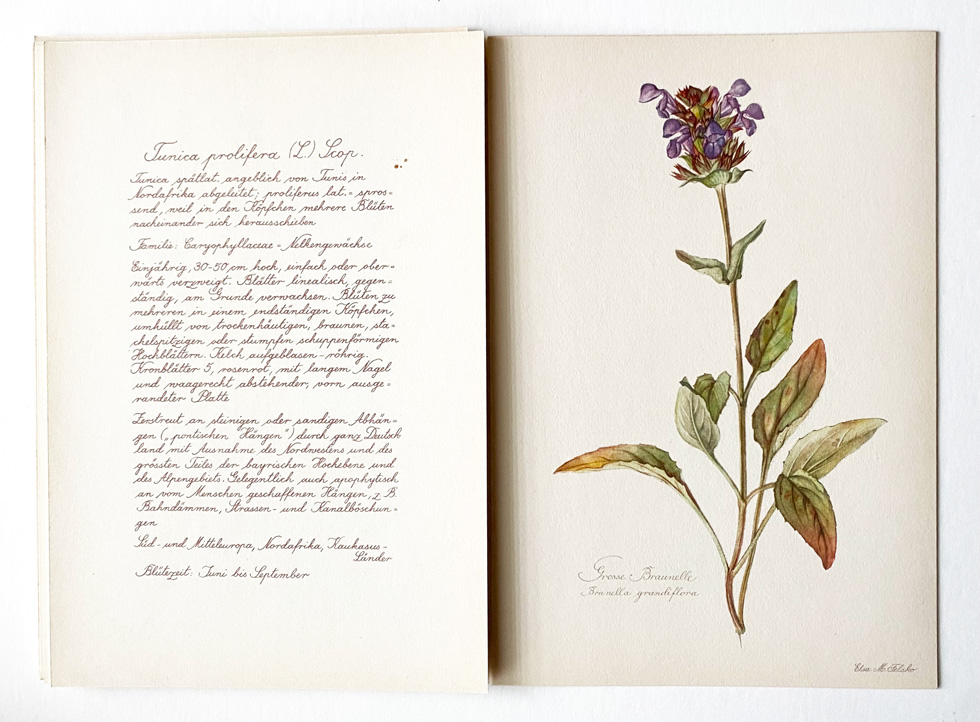 Tunica prolifera (L.) Scop.
Tunica spätlat. angeblich von Tunis in
Nordafrika abgeleitet; proliferus lat. = spros=
send, weil in den Köpfchen mehrere Blüten
nacheinander sich herausschieben
Familie: Caryophyllaceae = Nelkengewächse
Einjährig, 30-50 cm hoch, einfach oder ober=
wärts verzweigt. Blätter linealisch, gegen=
ständig, am Grunde verwachsen. Blüten zu
mehreren in einem endständigen Köpfchen,
umhüllt von trockenhäutigen, braunen, sta=
chelspitzigen oder stumpfen schuppenförmigen
Hochblättern. Kelch aufgeblasen-röhrig.
Kronblätter 5, rosenrot, mit langem Nagel
und waagerecht abstehender, vorn ausge=
randeter Platte
Zerstreut an steinigen oder sandigen Abhän=
gen („pontischen Hängen") durch ganz Deutsch
land mit Ausnahme des Nordwestens und des
grössten Teiles der bayrischen Hochebene und
des Alpengebiets. Gelegentlich auch apophytisch
an vom Menschen geschaffenen Hängen, z. B.
Bahndämmen, Strassen- und Kanalböschun=
gen
Süd- und Mitteleuropa, Nordafrika, Kaukasus-
Länder
Blütezeit: Juni bis September
Grosse Braunelle
Brunella grandiflora
Elsa M. Felsko